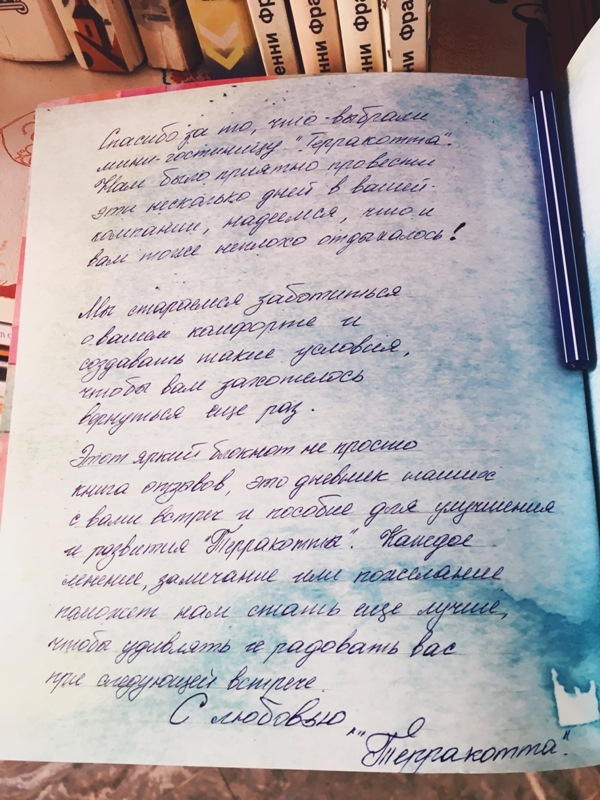 енни Фра
нни Фра
енни Фра
нни Фра
Спасибо за то, что выбрали
мини-гостиницу "Терракотта".
Нам было приятно провести
эти несколько дней в вашей
компании, надеемся, что и
вам тоже неплохо отдыхалось!
Мы стараемся заботиться
о вашем комфорте и
создавать такие условия,
чтобы вам захотелось
вернуться еще раз.
Этот яркий блокнот не просто
книга отзывов, это дневник наших
с вами встреч и пособие для улучшения
и развития "Терракотты". Каждое
мнение, замечание или пожелание
поможет нам стать еще лучше,
чтобы удивлять и радовать вас
при следующей встрече.
С любовью
"Терракотта".